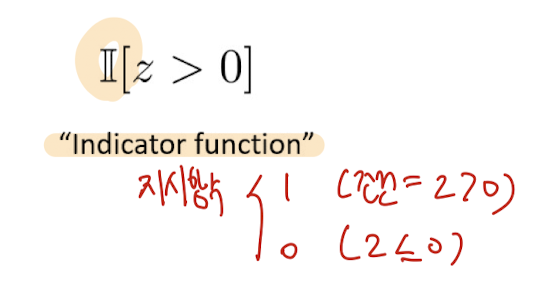 𝕀[z > 0]
“Indicator function”
지시함수 { 1 (조건 = z>0)
0 (z≤0)